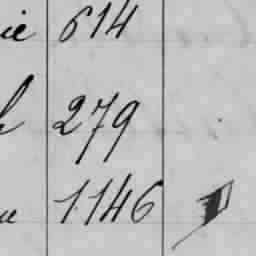 ie 614
279
1146